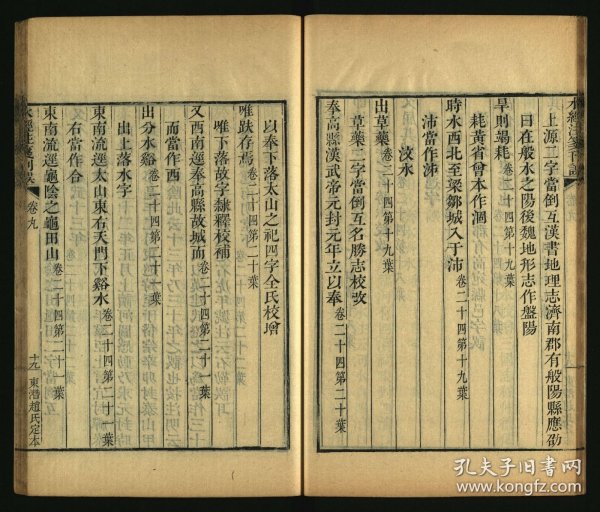 水經注箋刊誤
卷九
上源二字當倒互漢書地理志濟南郡有般陽縣應劭
曰在般水之陽後魏地形志作盤陽
旱則竭耗卷二十四第十九葉
耗黃省曾本作涸
時水西北至梁鄒城入于沛卷二十四第十九葉
沛當作泲
汶水
出草藥卷二十四第二十葉
草藥二字當倒互名勝志校改
奉高縣漢武帝元封元年立以奉卷二十四第二十葉
以奉下落太山之祀四字全氏校增
趺存焉卷二十四第二十葉
唯下落故字隸釋校補
又西南逕奉高縣故城而卷二十四第二十一葉
而當作西
出分水谿卷二十四第二十一葉
出上落水字
東南流逕太山東右天門下谿水卷二十四第二十一葉
右當作合
東南流逕龜陰之龜田山卷二十四第二十一葉
水經注箋刊誤
卷九
十九
東潛趙氏定本
孔夫子旧书网
www.kongfz.com